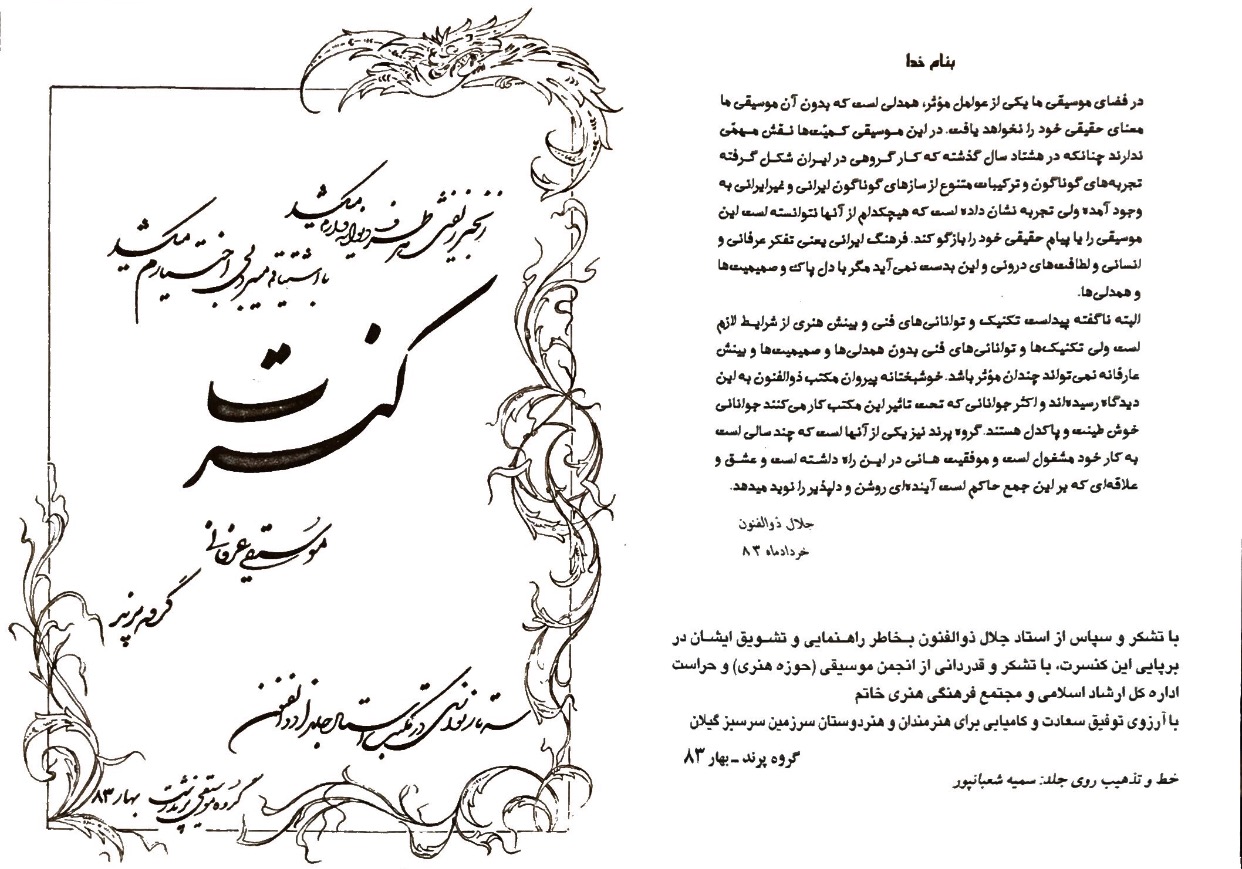 بنام خدا
در فضای موسیقی ما یکی از عوامل مؤثر، همدلی است که بدون آن موسیقی ما
معنای حقیقی خود را نخواهد یافت. در این موسیقی کمیّت‌ها نقش مهمّی
ندارند چنانکه در هشتاد سال گذشته که کار گروهی در ایران شکل گرفته
تجربه‌های گوناگون و ترکیبات متنوع از سازهای گوناگون ایرانی و غیرایرانی به
وجود آمده ولی تجربه نشان داده است که هیچکدام از آنها نتوانسته است این
موسیقی را یا پیام حقیقی خود را بازگو کند. فرهنگ ایرانی یعنی تفکر عرفانی و
انسانی و لطافت‌های درونی و این بدست نمی‌آید مگر با دل پاک و صمیمیت‌ها
و همدلی‌ها.
البته ناگفته پیداست تکنیک و توانائی‌های فنی و بینش هنری از شرایط لازم
است ولی تکنیک‌ها و توانائی‌های فنی بدون همدلی‌ها و صمیمیت‌ها و بینش
عارفانه نمی‌تواند چندان مؤثر باشد. خوشبختانه پیروان مکتب ذوالفنون به این
دیدگاه رسیده‌اند و اکثر جوانانی که تحت تاثیر این مکتب کار می‌کنند جوانانی
خوش طینت و پاکدل هستند. گروه پرند نیز یکی از آنها است که چند سالی است
به کار خود مشغول است و موفقیت هائی در این راه داشته است و عشق و
علاقه‌ای که بر این جمع حاکم است آینده‌ای روشن و دلپذیر را نوید میدهد.
جلال ذوالفنون
خردادماه ۸۳
با تشکر و سپاس از استاد جلال ذوالفنون بخاطر راهنمایی و تشویق ایشان در
برپایی این کنسرت، با تشکر و قدردانی از انجمن موسیقی (حوزه هنری) و حراست
اداره کل ارشاد اسلامی و مجتمع فرهنگی هنری خاتم
با آرزوی توفیق سعادت و کامیابی برای هنرمندان و هنردوستان سرزمین سرسبز گیلان
گروه پرند ـ بهار ۸۳
خط و تذهیب روی جلد: سمیه شعبانپور
زنجیر زلفش هر طرف دیوانه وارم میکشد
با اشتیاقم میبرد بی اختیارم میکشد
کنسرت
موسیقی عرفانی
گروه پرند
سه تار نوازی در مکتب استاد جلال ذوالفنون
گروه موسیقی پرند رشت بهار ۸۳